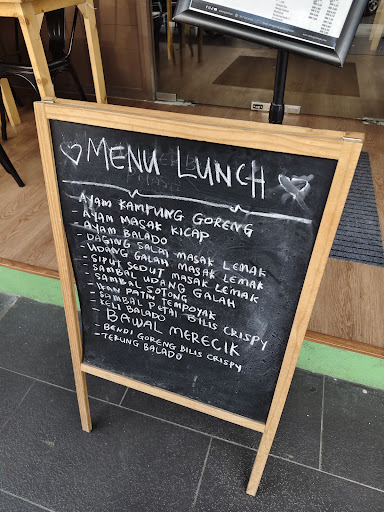 MENU LUNCH
- AYAM KAMPUNG GORENG
- AYAM MASAK KICAP
- AYAM BALADO
- DAGING SALAI MASAK LEMAK
- UDANG GALAH MASAK LEMAK
- SIPUT SEDUT MASAK LEMAK
- SAMBAL UDANG GALAH
- SAMBAL SOTONG
- IKAN PATIN TEMPOYAK
- SAMBAL PETAI BILIS CRISPY
- KELI BALADO
- BAWAL MERECIK
- BENDI GORENG BILIS CRISPY
- TERUNG BALADO